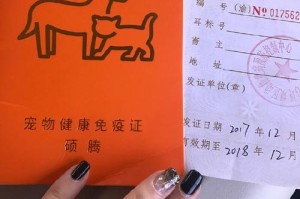 宠物健康免疫证
硕腾
编号(渝)No 017562
耳标号
畜种
畜主
发证单位(章)
发证日期 2017年12月
有效期至2018年12月